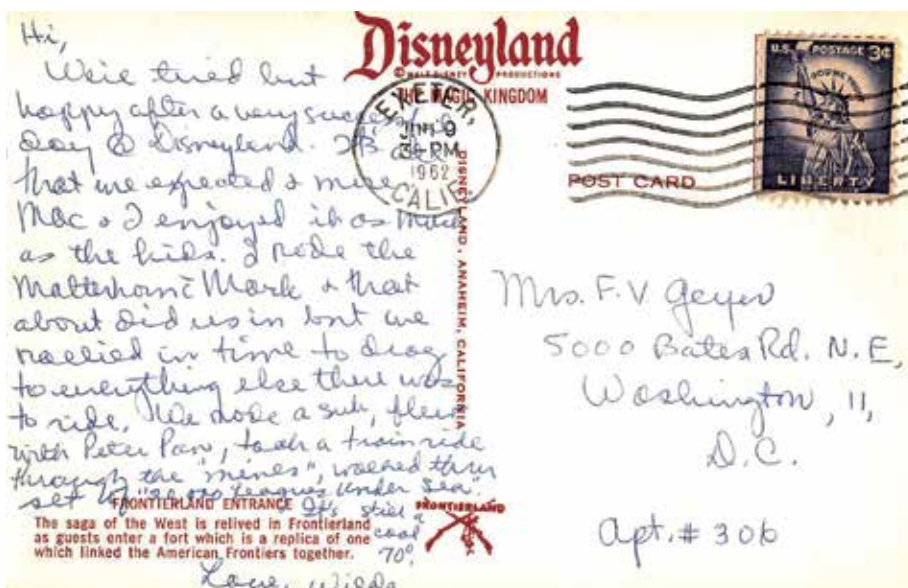 Hi,
We're tired but
happy after a very successful
day @ Disneyland. It's all
that we expected & more
Mac & I enjoyed it as much
as the kids. I rode the
Matterhorn c̄ Mark & that
about did us in but we
rallied in time to drag
to everything else there was
to ride. We rode a sub, flew
with Peter Pan, took a train ride
through the "mines", walked thru
set of "20,000 Leagues Under Sea".
It's still a
cool
70°.
Love, Wilda
Disneyland
© WALT DISNEY PRODUCTIONS
THE MAGIC KINGDOM
EXETER,
JUN 9
3 PM
1962
CALIF.
U.S. POSTAGE 3¢
IN GOD WE TRUST
LIBERTY
POST CARD
DISNEYLAND, ANAHEIM, CALIFORNIA
Mrs. F. V. Geyer
5000 Bates Rd. N.E,
Washington, 11,
D.C.
Apt. # 306
FRONTIERLAND ENTRANCE
The saga of the West is relived in Frontierland
as guests enter a fort which is a replica of one
which linked the American Frontiers together.
FRONTIERLAND